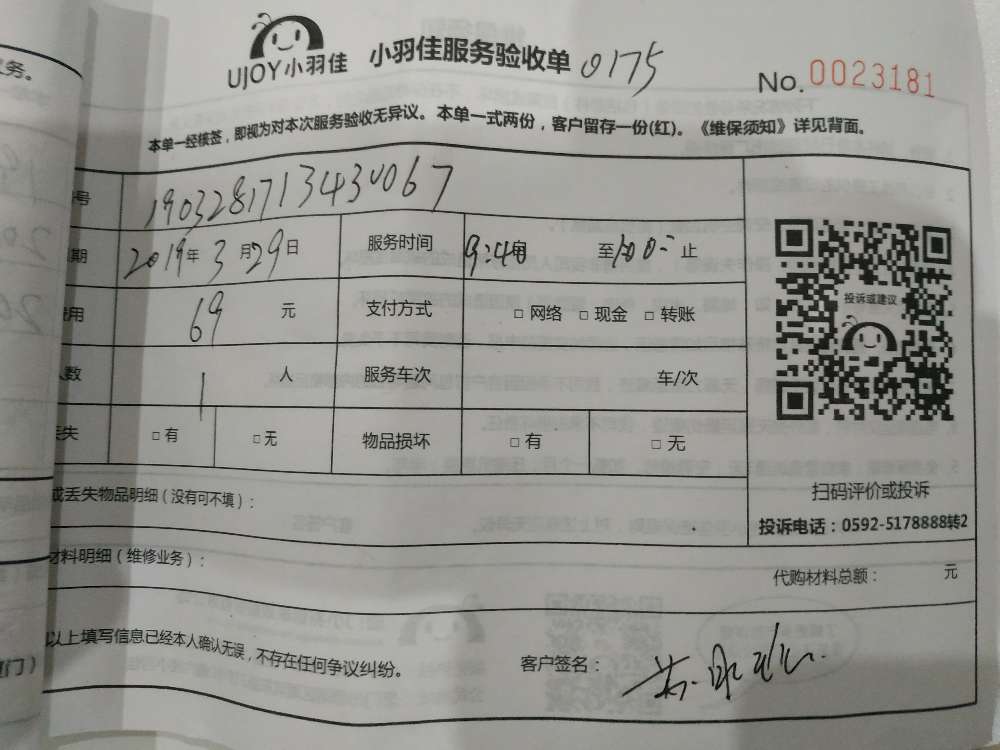 务。
UJOY小羽佳 小羽佳服务验收单 0175
No. 0023181
本单一经核签，即视为对本次服务验收无异议。本单一式两份，客户留存一份(红)。《维保须知》详见背面。
号 190328171343U067
期 2019年3月29日 服务时间 至10:0 止
费用 69 元 支付方式 □ 网络 □ 现金 □ 转账
人数 1 人 服务车次 车/次
丢失 □ 有 □ 无 物品损坏 □ 有 □ 无
投诉或建议
扫码评价或投诉
投诉电话：0592-5178888转2
或丢失物品明细（没有可不填）：
材料明细（维修业务）：
代购材料总额： 元
以上填写信息已经本人确认无误，不存在任何争议纠纷。
客户签名：
门）